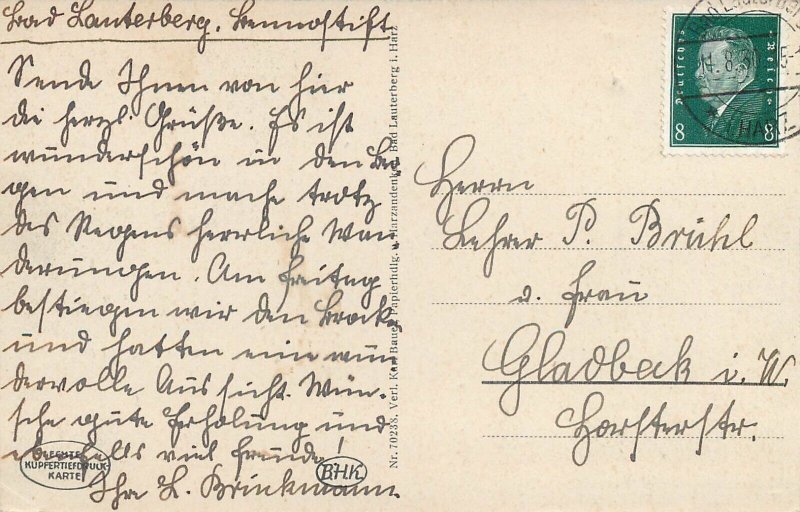 Bad Lauterberg. Bennostift
Sende Ihnen von hier
die herzl. Grüße. Es ist
wunderschön in den Ber
gen und mache trotz
des Regens herrliche Wan
derungen. Am Freitag
bestiegen wir den Brock
und hatten eine wun
dervolle Aussicht. Wün-
sche gute Erholung und
ebenfalls viel Freude!
Ihre L. Brinkmann.
ECHTE
KUPFERTIEFDRUCK-
KARTE
B.H.K
Nr. 70238. Verl. Karl Bauer, Papierhdlg. u. Harzandenken, Bad Lauterberg i. Harz
Deutsches Reich
8 8
Herrn
Lehrer P. Brühl
u. Frau
Gladbeck i. W.
Horsterstr.